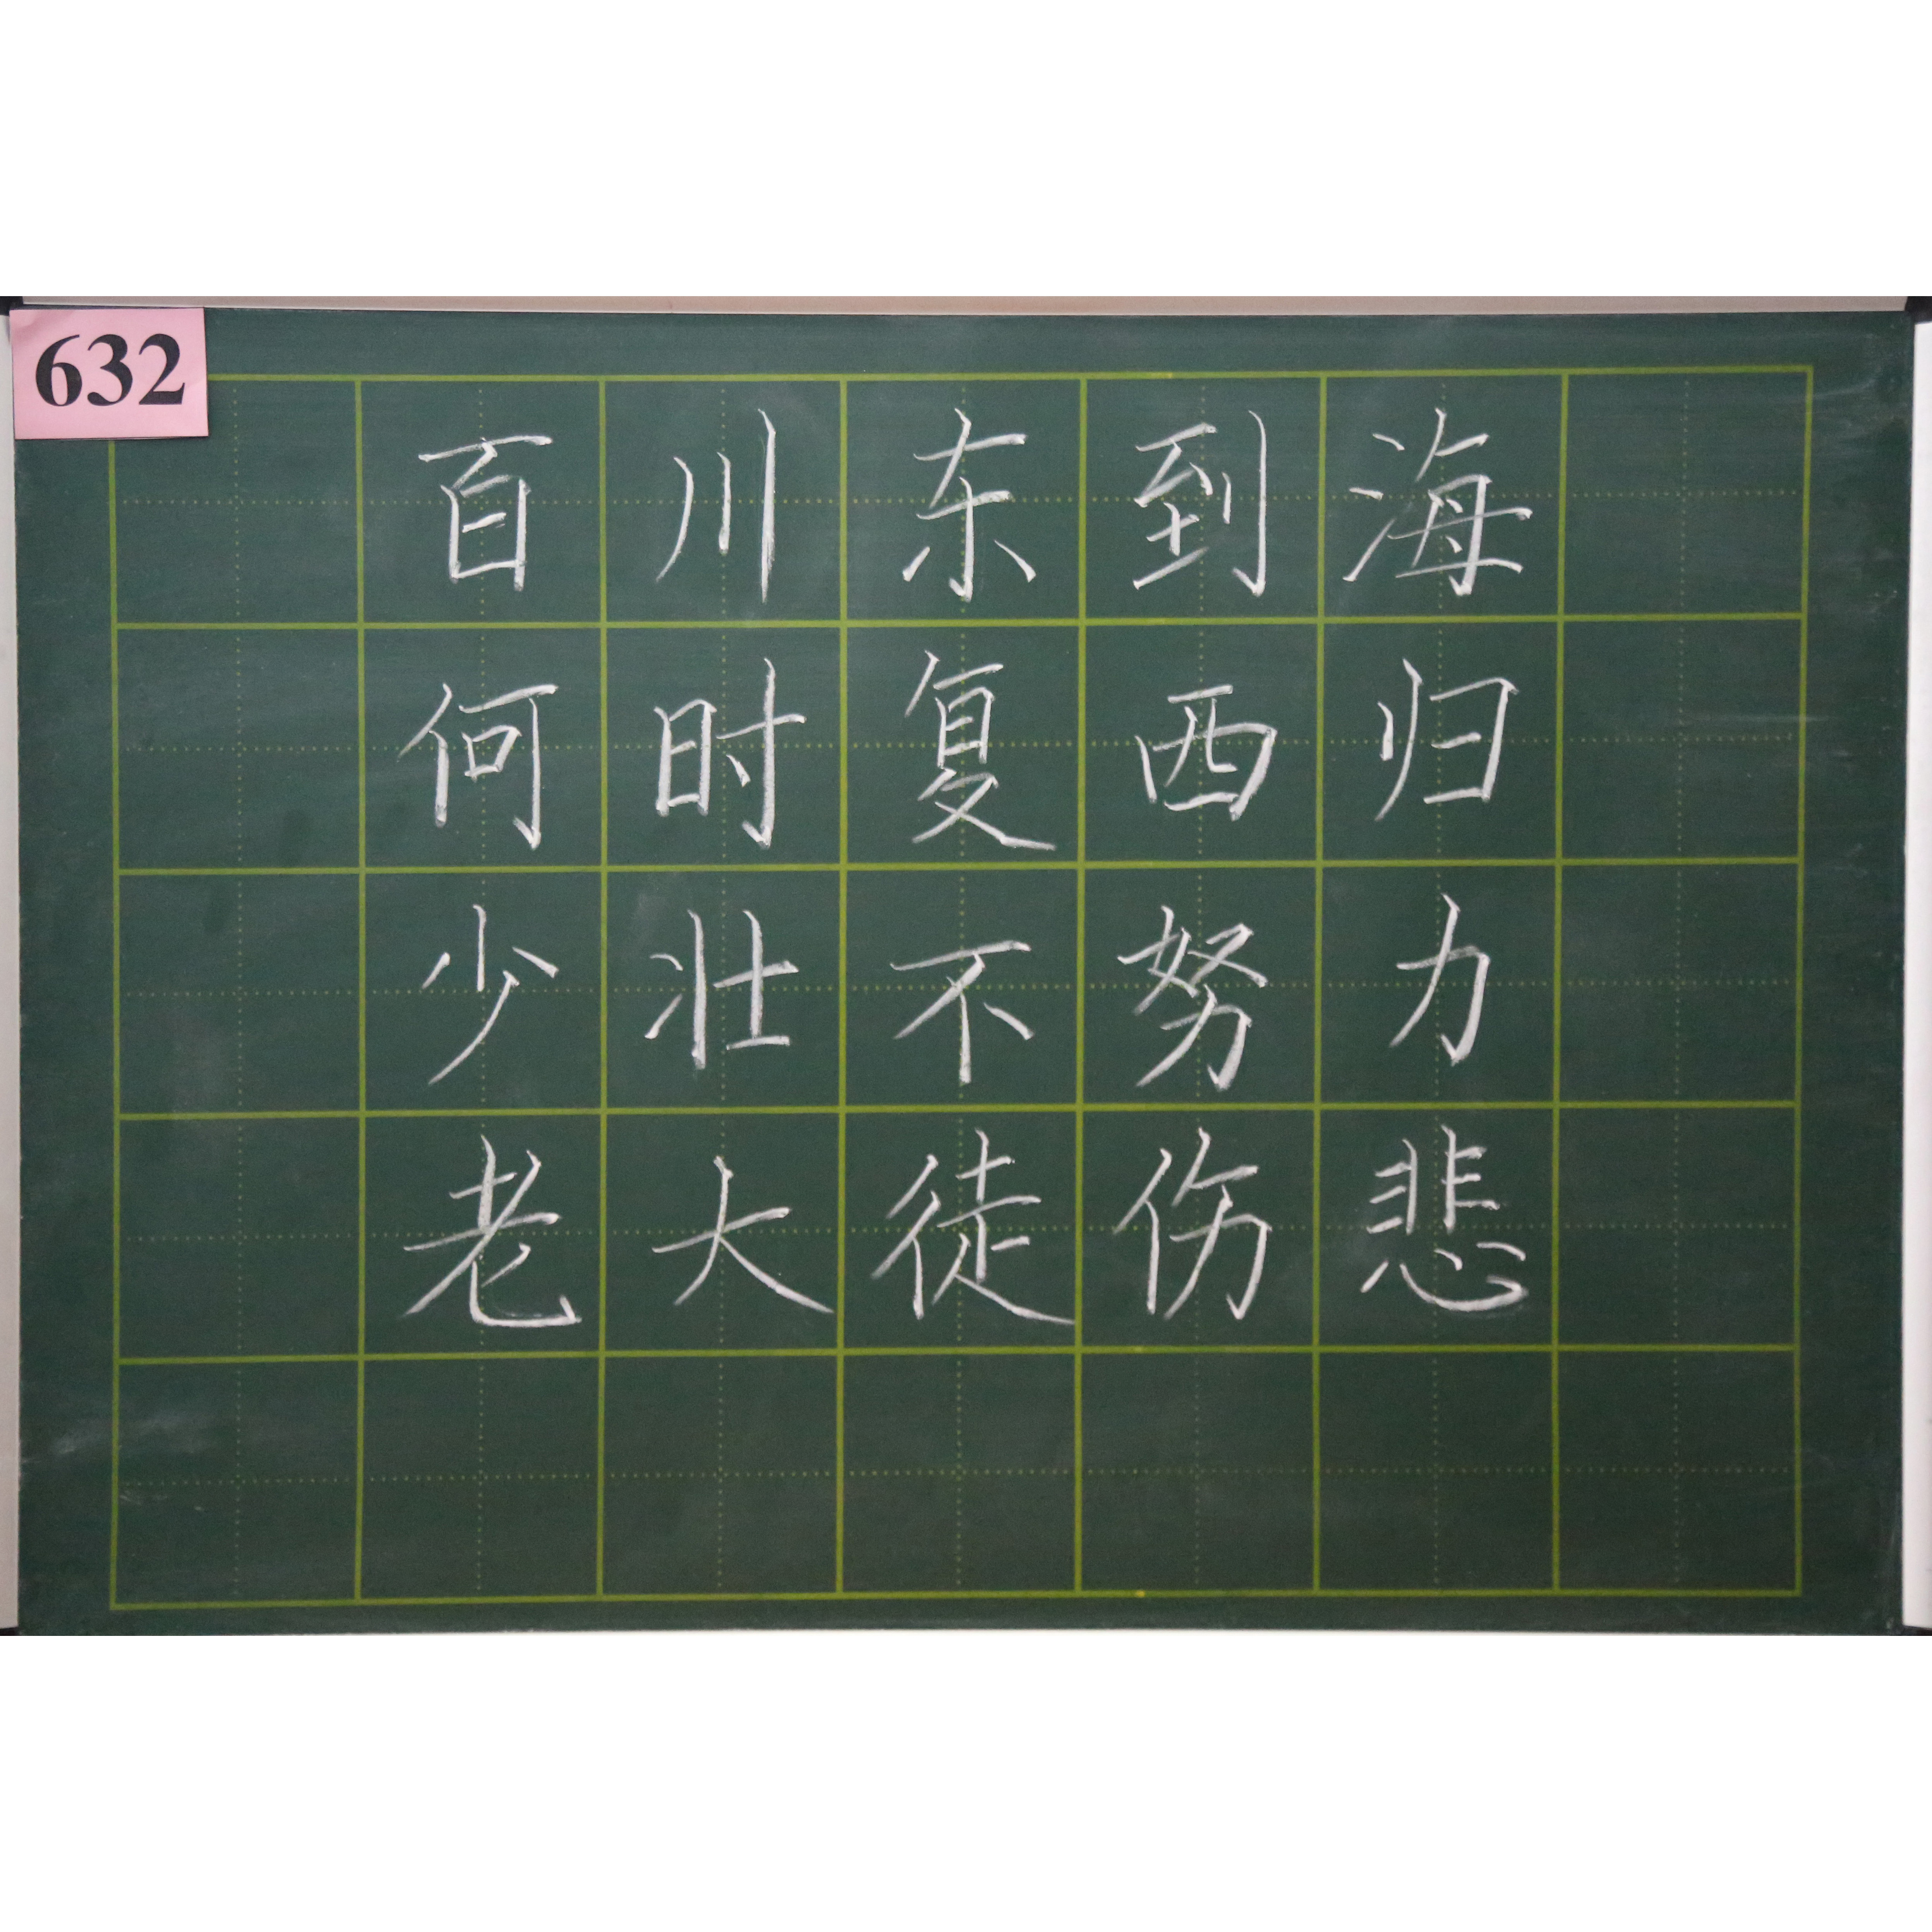 632
百川东到海
何时复西归
少壮不努力
老大徒伤悲